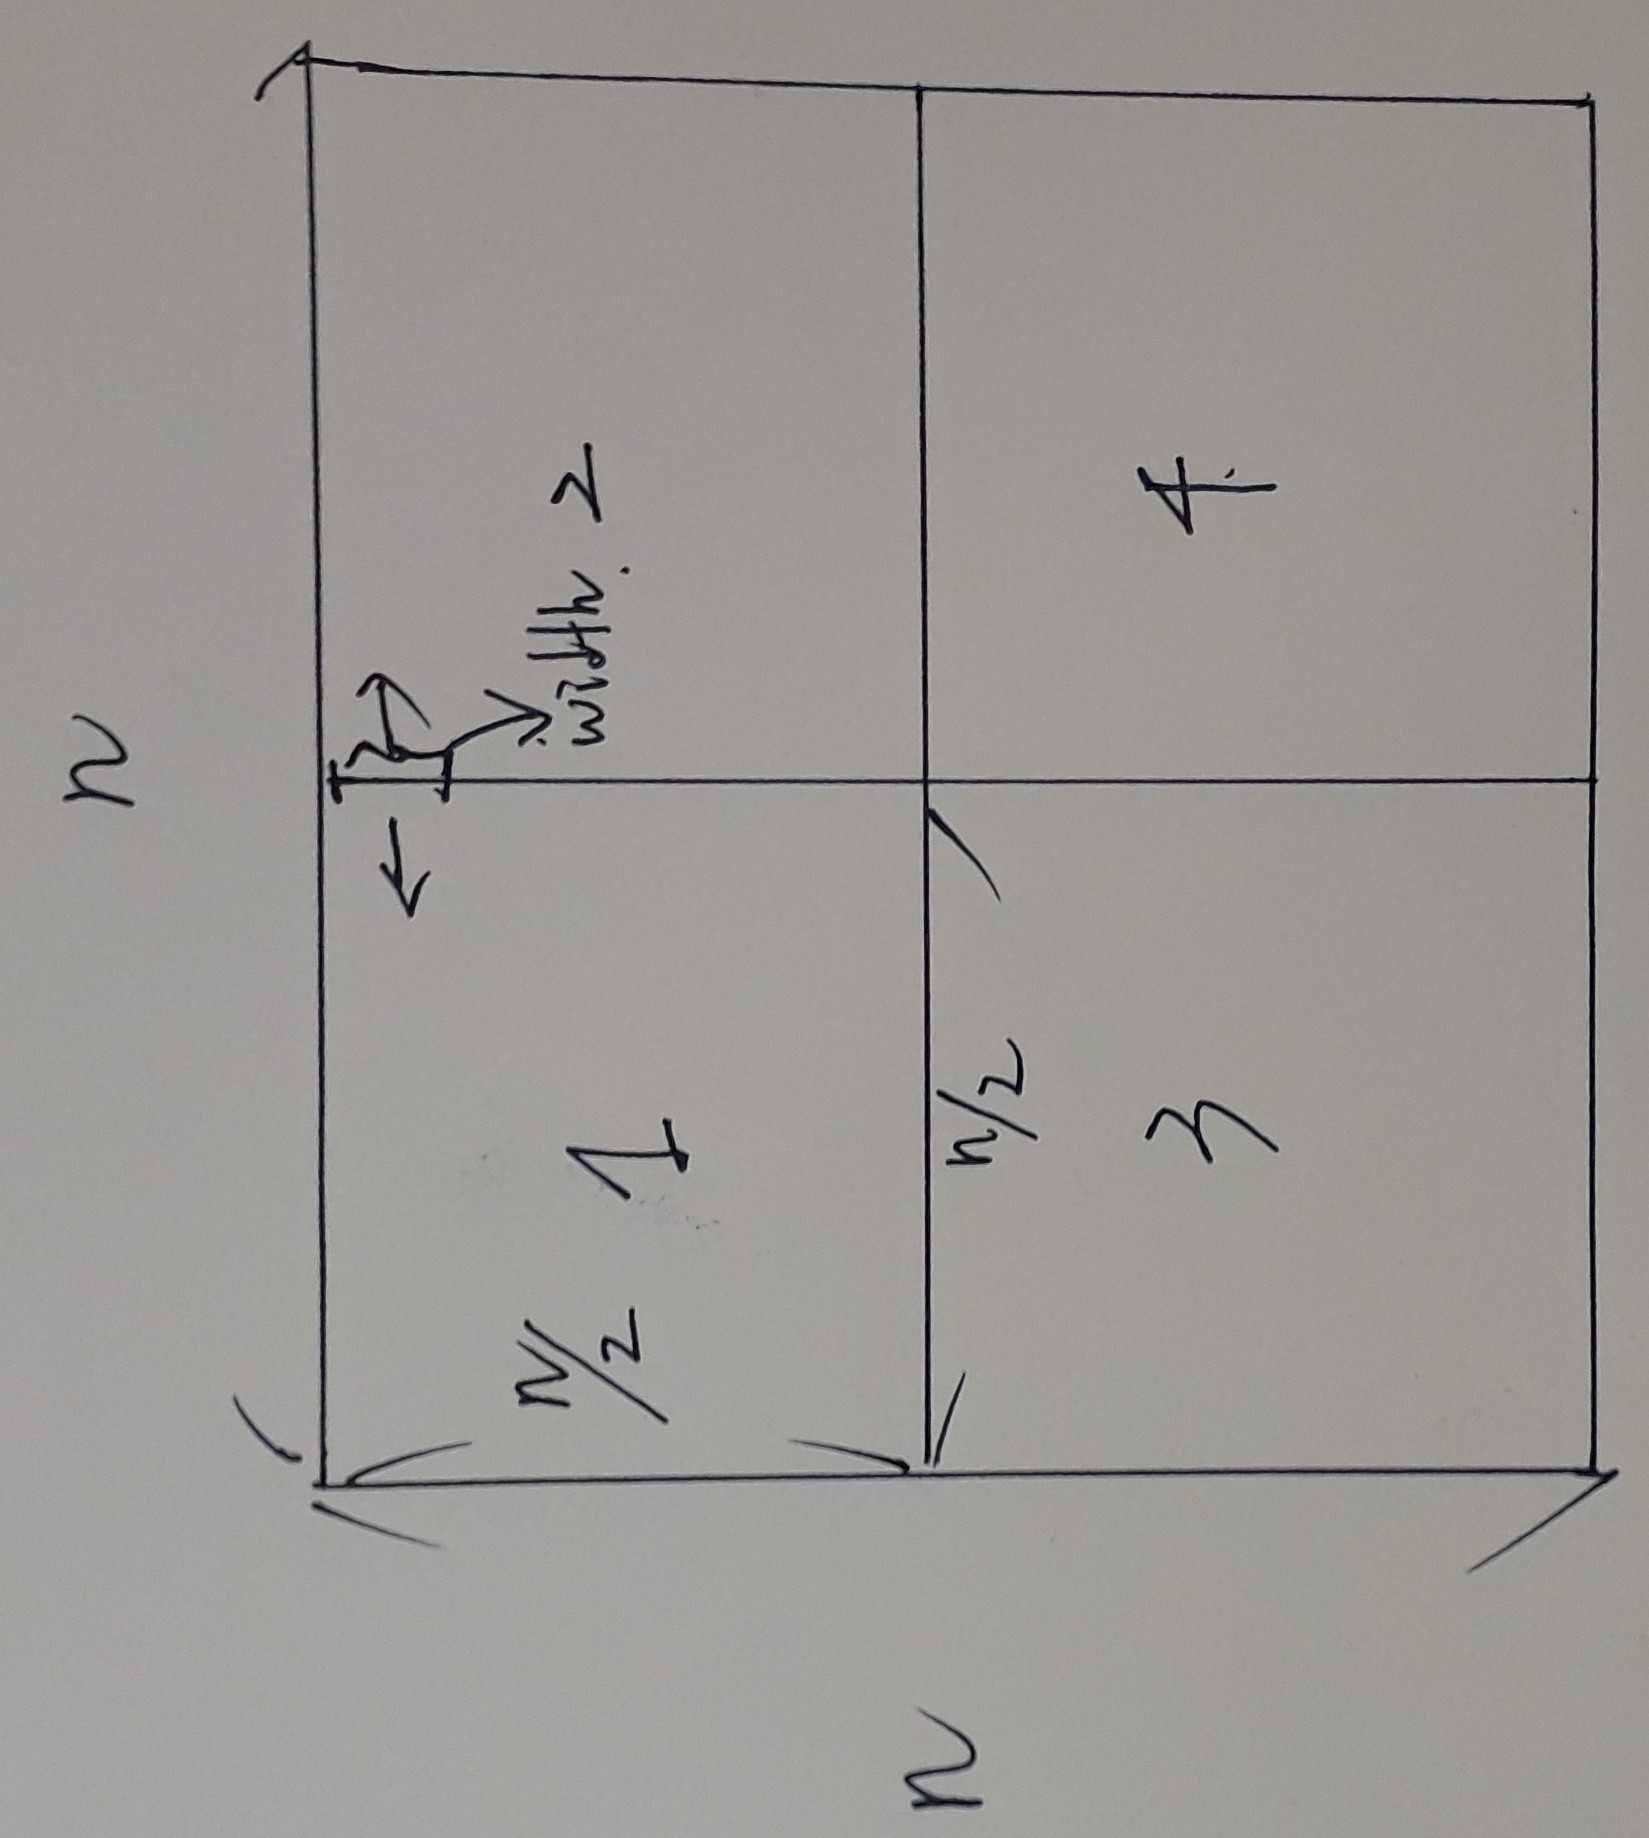 n
n/2
1
width. 2
n
n/2
3
4